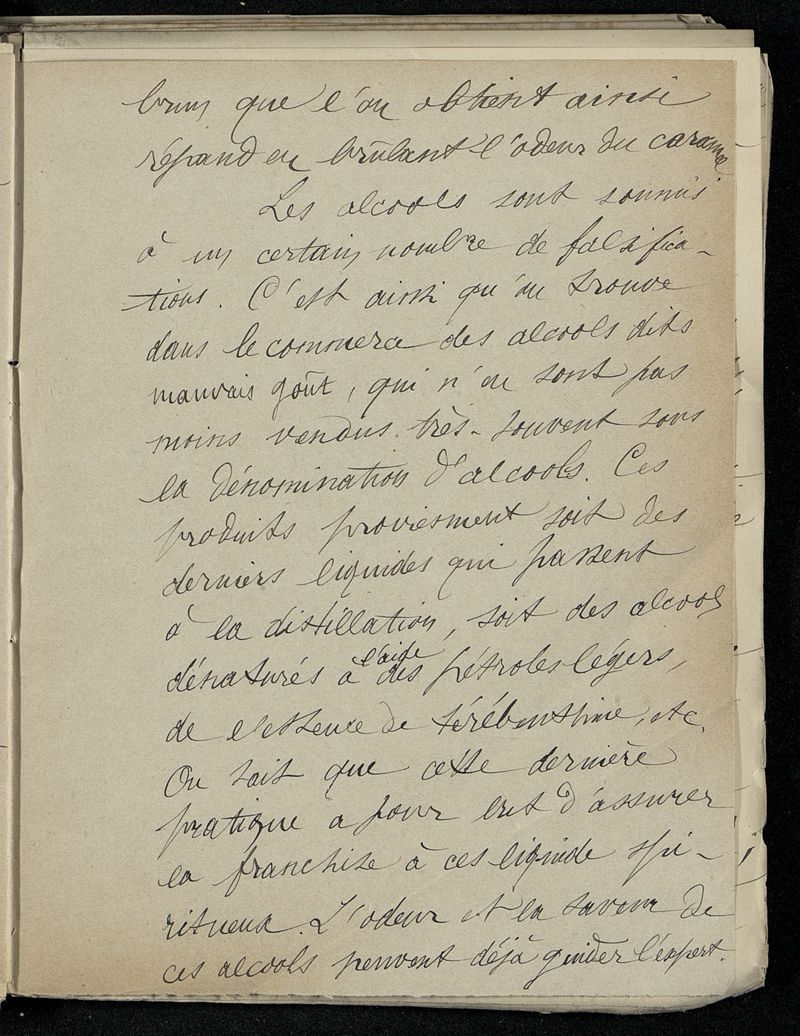 brun que l'on obtient ainsi
répand en brûlant l'odeur du carame
Les alcools sont soumis
à un certain nombre de falsifica-
tions. C'est ainsi qu'on trouve
dans le commerce des alcools dits
mauvais goût, qui n'en sont pas
moins vendus très-souvent sous
la dénomination d'alcools. Ces
produits proviennent soit des
derniers liquides qui passent
à la distillation, soit des alcools
dénaturés à l'aide des pétroles légers,
de essence de térébenthine, etc.
On sait que cette dernière
pratique a pour but d'assurer
la franchise à ces liquide spi-
ritueux. L'odeur et la saveur de
ces alcools peuvent déjà guider l'expert.